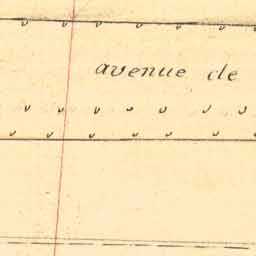 avenue de